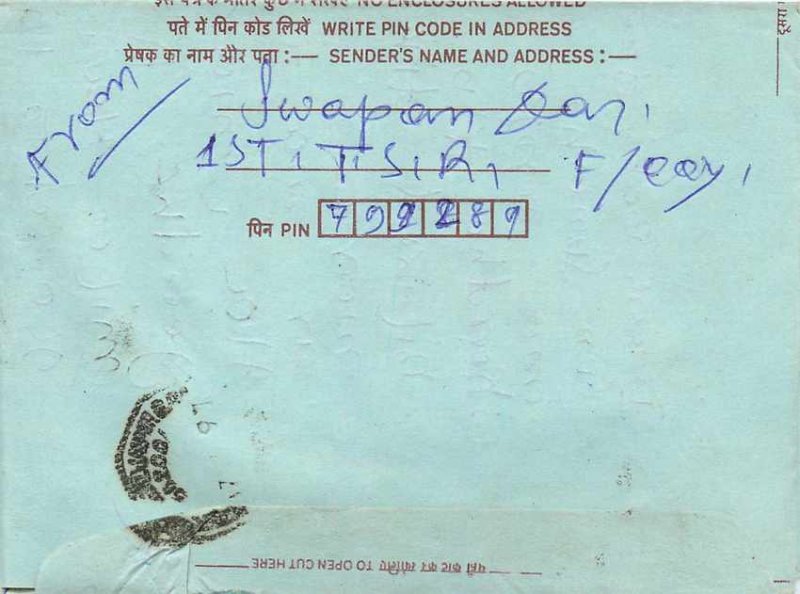 इस पत्र के भीतर कुछ न रखिये NO ENCLOSURES ALLOWED
पते में पिन कोड लिखें WRITE PIN CODE IN ADDRESS
प्रेषक का नाम और पता :— SENDER'S NAME AND ADDRESS :—
From Swapan Das,
1ST, T, S, R, F/Coy,
पिन PIN 799289
दूसरा
यहाँ काट कर खोलिए TO OPEN CUT HERE